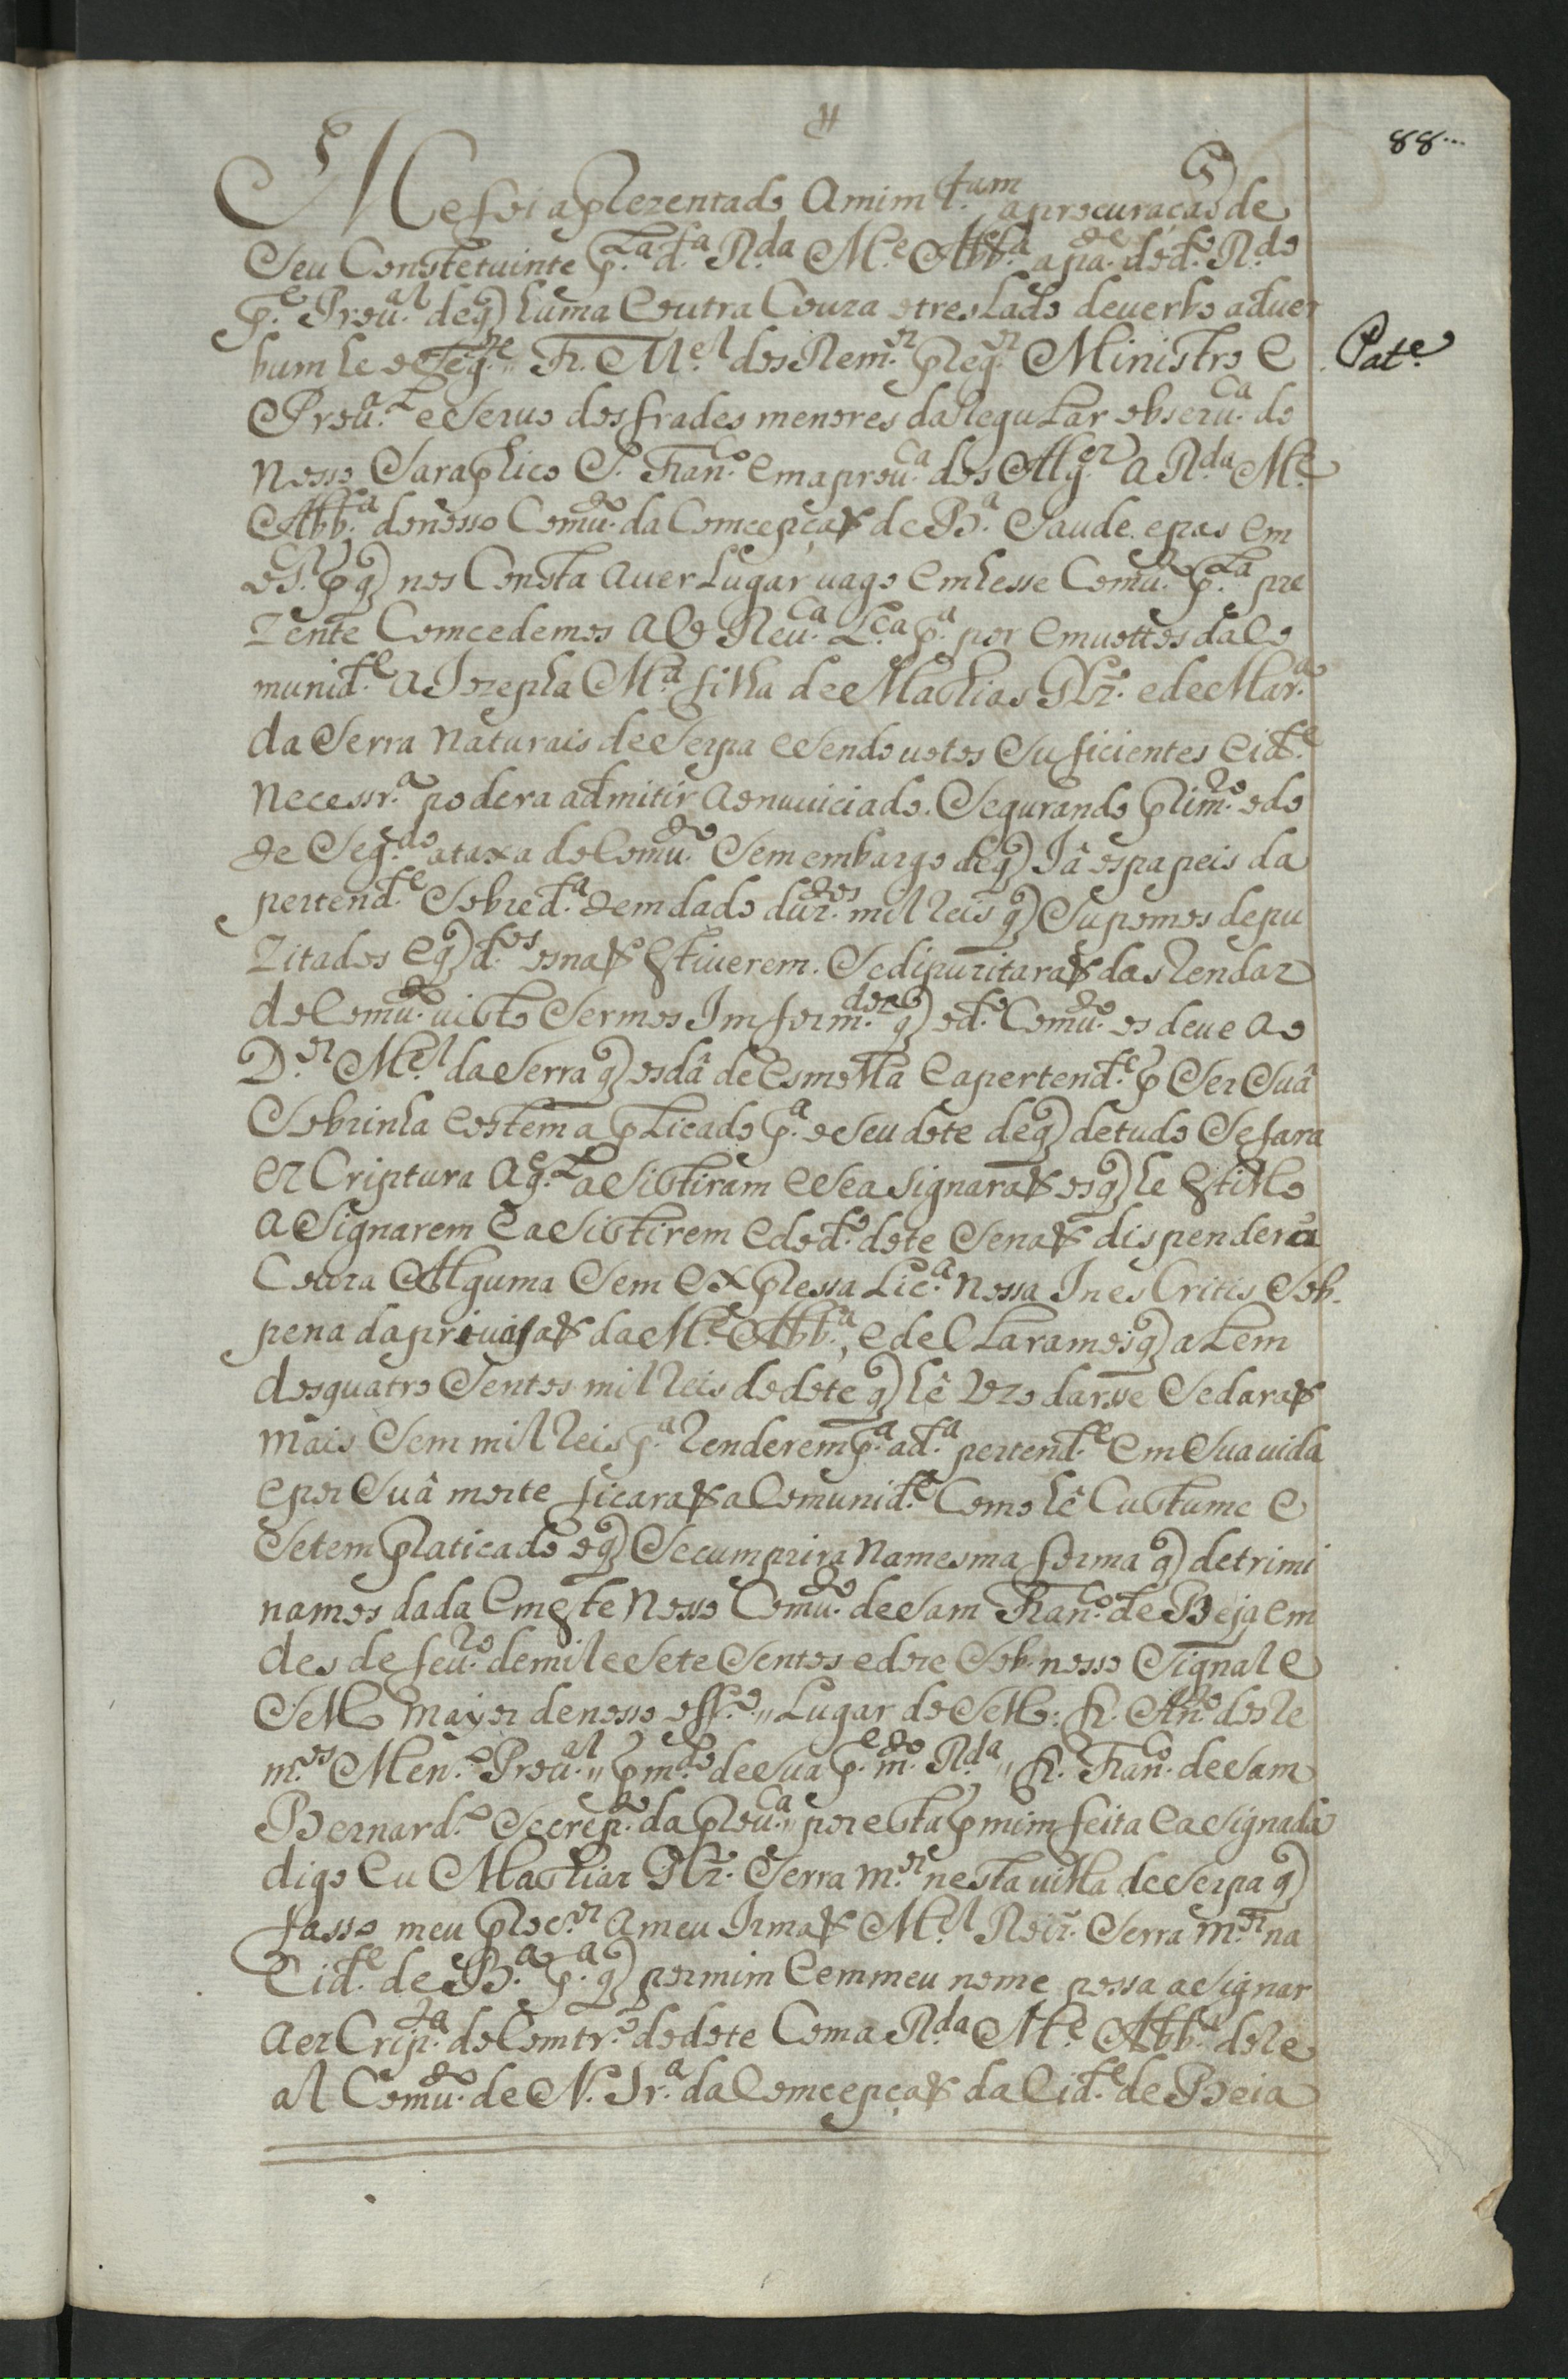 88...
Me foi aprezentado Amim t.am aprocuração de
Seu Constetuinte p.la d.a R.da M.e Abb.a apa.te dod.o R.do
P.e Prou.al deq huma Eoutra Couza otreslado deuerbo aduer
bum he o Seg.te,, Fr. M.el dos Rem.os preg.or Ministro E
Prou.al eSeruo dos frades menores da Regular obseru.ca do
Nosso Saraphico S. Fran.co Emaprou.ca dos Alg.es A R.da M.e
Abb.a donosso Comu.to da Comcepçaõ de B.a Saude epas Em
o S.r pq nos Consta Auer Lugar uago Emhesse Comu.to p.la pre
zente Comcedemos A V R Reu.ca L.ca p.a por Emuottos da Co
munid.e A Jozepha M.a filha de Mathias Roiz. e de Mar.a
da Serra Naturais deSerpa eSendo uotos Suficientes Eid.e
Necessr.a podera admitir Aonuuiciado. Segurando prim.ro odo
te Seg.do ataxa do Comu.to Sem embargo deq Jâ ospapeis da
pertend.e Sobred.a tem dado duz.tos mil reis q Supomos depu
zitados Eq d.tos os naõ Estiuerem. Sedipuzitaraõ das Rendas
do Comu.to uisto Sermos Imform.dos q od.o Comu.to os deue Ao
D.or M.el da Serra q osdâ de Esmolla Eapertend.e p Ser Suâ
Sobrinha Eostem aplicado p.a oSeu dote deq detudo Sefara
Ez Criptura Aq.la aSistiram eSea Signaraõ osq he Estillo
ASignarem EaSistirem Edod.o dote Senaõ dispendera
Couza Alguma Sem Expressa Lic.a Nossa In es Critis Sob
pena dapriuasaõ daM.e Abb.a, Edeclaramos q alem
dosquatro Sentos mil reis dodote q hê uzo darsse Sedaraõ
mais Sem mil reis p.a Renderem p.a ad.a pertend.e Em Suauida
Epor Suâ morte ficaraõ aComunid.e Como hê Custume E
Setem praticado oq Secumprira Namesma forma q detrimi
namos dada Emeste Nosso Comu.to de Sam Fran.co de Beja Em
des de feu.ro demil eSete Sentos edoze Sob nosso Signal E
Sello mayor denosso off.o,, Lugar do Sello: fr. M.el dos Re
m.os Men.o Prou.al,, p m.do de Sua p.e m.to R.da,, fr. Fran.co de Sam
Bernard.o Secrep.ro da prou.ca,, por esta p mim feita EaSignada
digo Eu Mathias Roiz. Serra m.or nesta uilla de Serpa q
fasso meu proc.or Ameu Irmaõ M.el Roiz. Serra m.or na
Cid.e de B.a p.a q por mim Eem meu nome possa aSignar
AezCrip.ra do Comtr.o dodote Coma R.da M.e Abb.a do Re
al Comu.to de N. Sr.a da Comcepçaõ da Cid.e de Beia
Pat.e